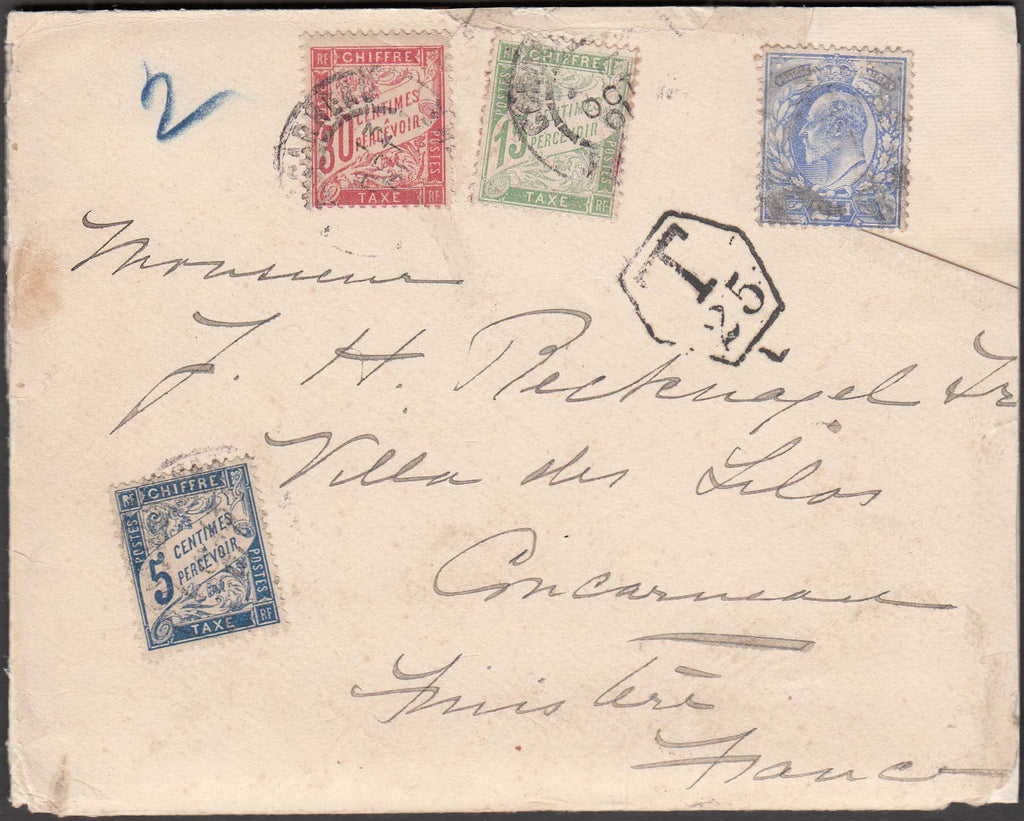 2
RF CHIFFRE
30 CENTIMES
À
PERCEVOIR
POSTES
TAXE RF
RF CHIFFRE
POSTES
15 CENTIMES
À
PERCEVOIR
POSTES
TAXE RF
T
25
Monsieur
J. H. Recknagel Jr
Villa des Lilas
Concarneau
Finistère
France
RF CHIFFRE
POSTES
5 CENTIMES
À
PERCEVOIR
POSTES
TAXE RF